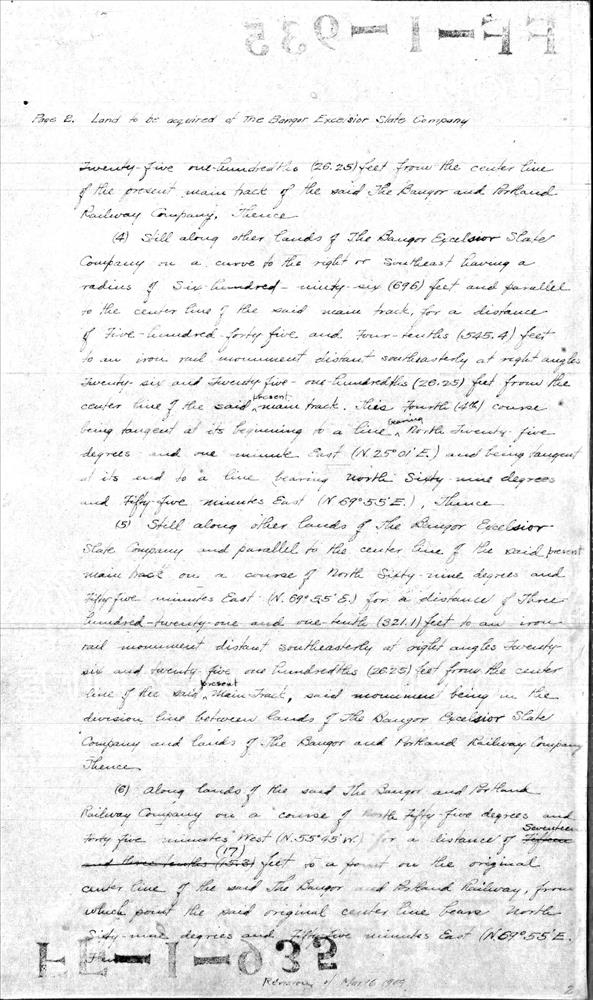 FF-1-935
Page 2. Land to be acquired of The Bangor Excelsior Slate Company
Twenty-five one-hundredths (26.25) feet from the center line
of the present main track of the said The Bangor and Portland
Railway Company. Thence
(4) Still along other lands of The Bangor Excelsior Slate
Company on a curve to the right or Southeast having a
radius of Six-hundred-ninty-six (696) feet and parallel
to the center line of the said main track, for a distance
of Five-hundred-forty five and Four-tenths (545.4) feet
to an iron rail monument distant southeasterly at right angles
Twenty-six and Twenty five-one-hundredths (26.25) feet from the
center line of the said present main track. This Fourth (4th) course
being tangent at its beginning to a line bearing North Twenty-five
degrees and one minute East (N.25°01'E.) and being tangent
at its end to a line bearing North Sixty-nine degrees
and Fifty-five minutes East (N 69°55'E.), Thence
(5) Still along other lands of The Bangor Excelsior
Slate Company and parallel to the center line of the said present
main track on a course of North Sixty-nine degrees and
Fifty five minutes East (N. 69°55'E.) for a distance of Three
hundred-twenty-one and one-tenth (321.1) feet to an iron
rail monument distant southeasterly at right angles Twenty-
six and twenty-five one hundredths (26.25) feet from the center
line of the said present Main Track, said monument being in the
division line between lands of The Bangor Excelsior Slate
Company and lands of The Bangor and Portland Railway Company
Thence
(6) Along lands of the said The Bangor and Portland
Railway Company on a course of North Fifty-five degrees and
Forty five minutes West (N.55°45'W.) for a distance of Fifteen Seventeen
and three tenths (15.3) (17) feet to a point on the original
center line of the said The Bangor and Portland Railway, from
which point the said original center line bears North
Sixty-nine degrees and Fifty-five minutes East (N 69°55'E.
FF-1-935
Revision of Mar 16 1909
2